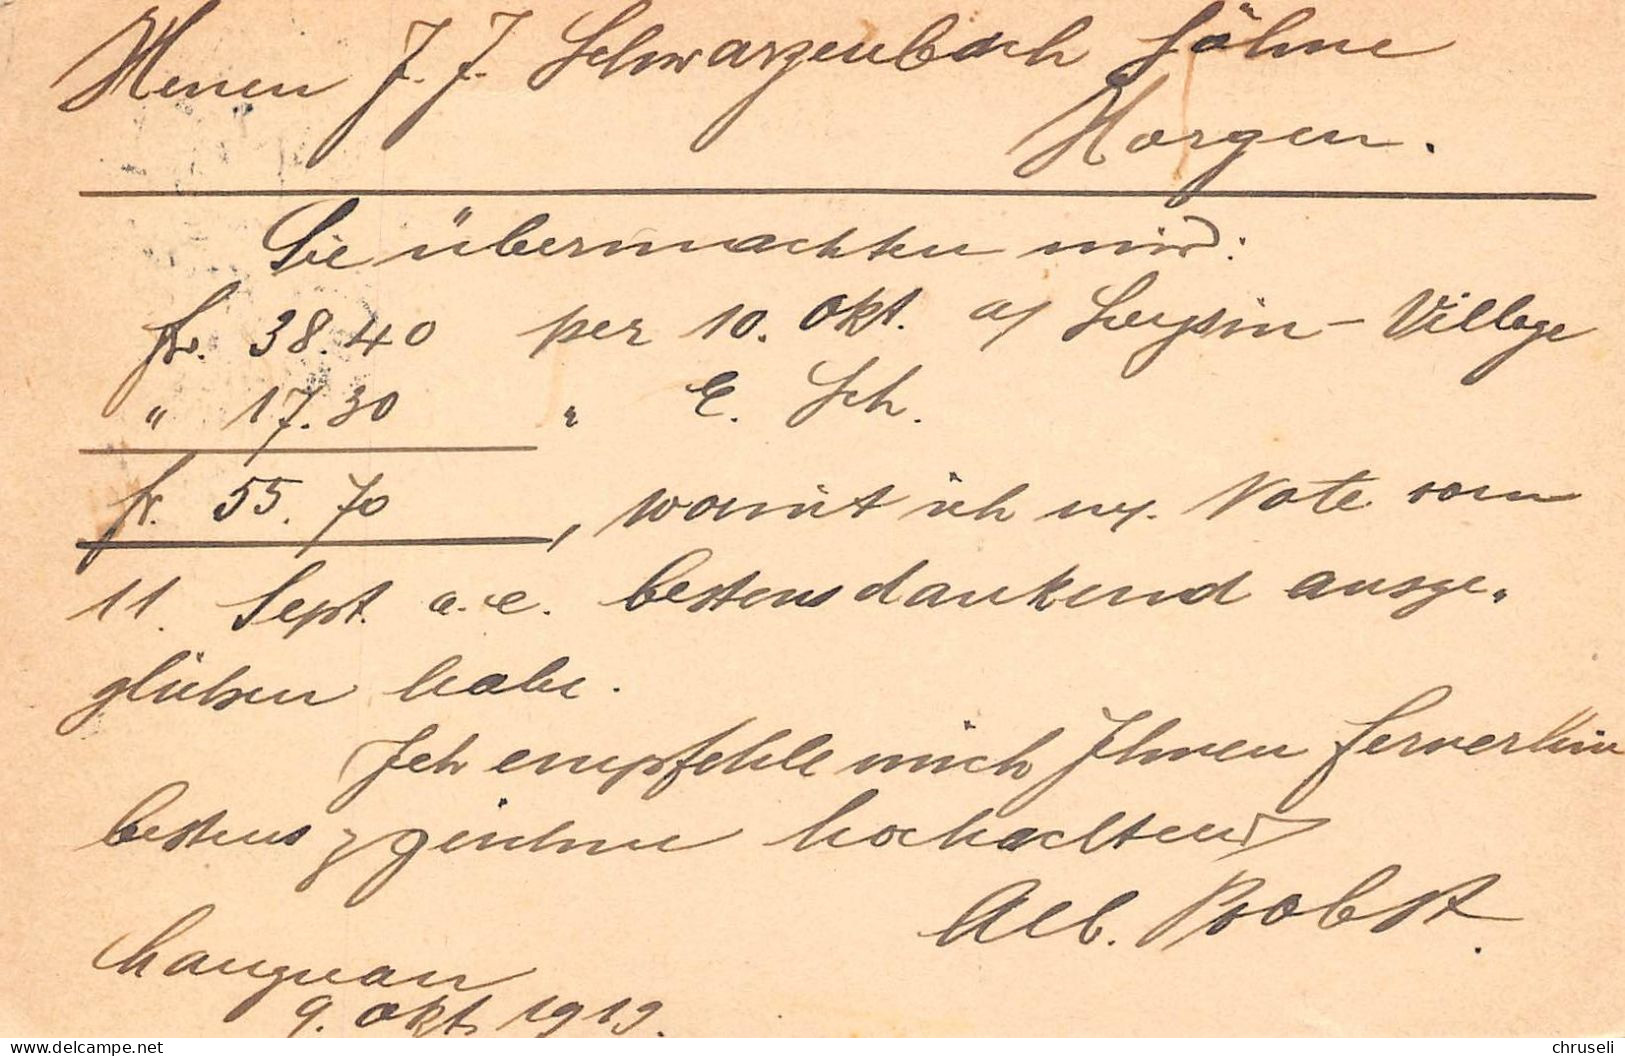 Herren J. J. Schwarzenbach Söhne
Horgen.
Sie übermachten mir:
fr. 38.40 per 10. Okt. a/ Leysin-Village
" 17.30 " E. Sch.
fr. 55.70, womit ich Note vom
11. Sept. a. c. bestens dankend ausge-
glichen habe.
Ich empfehle mich Ihnen fernerhin
bestens & zeichne hochachtend
Alb. Probst.
Langnau
9. Okt. 1919.
www.delcampe.net
chruseli